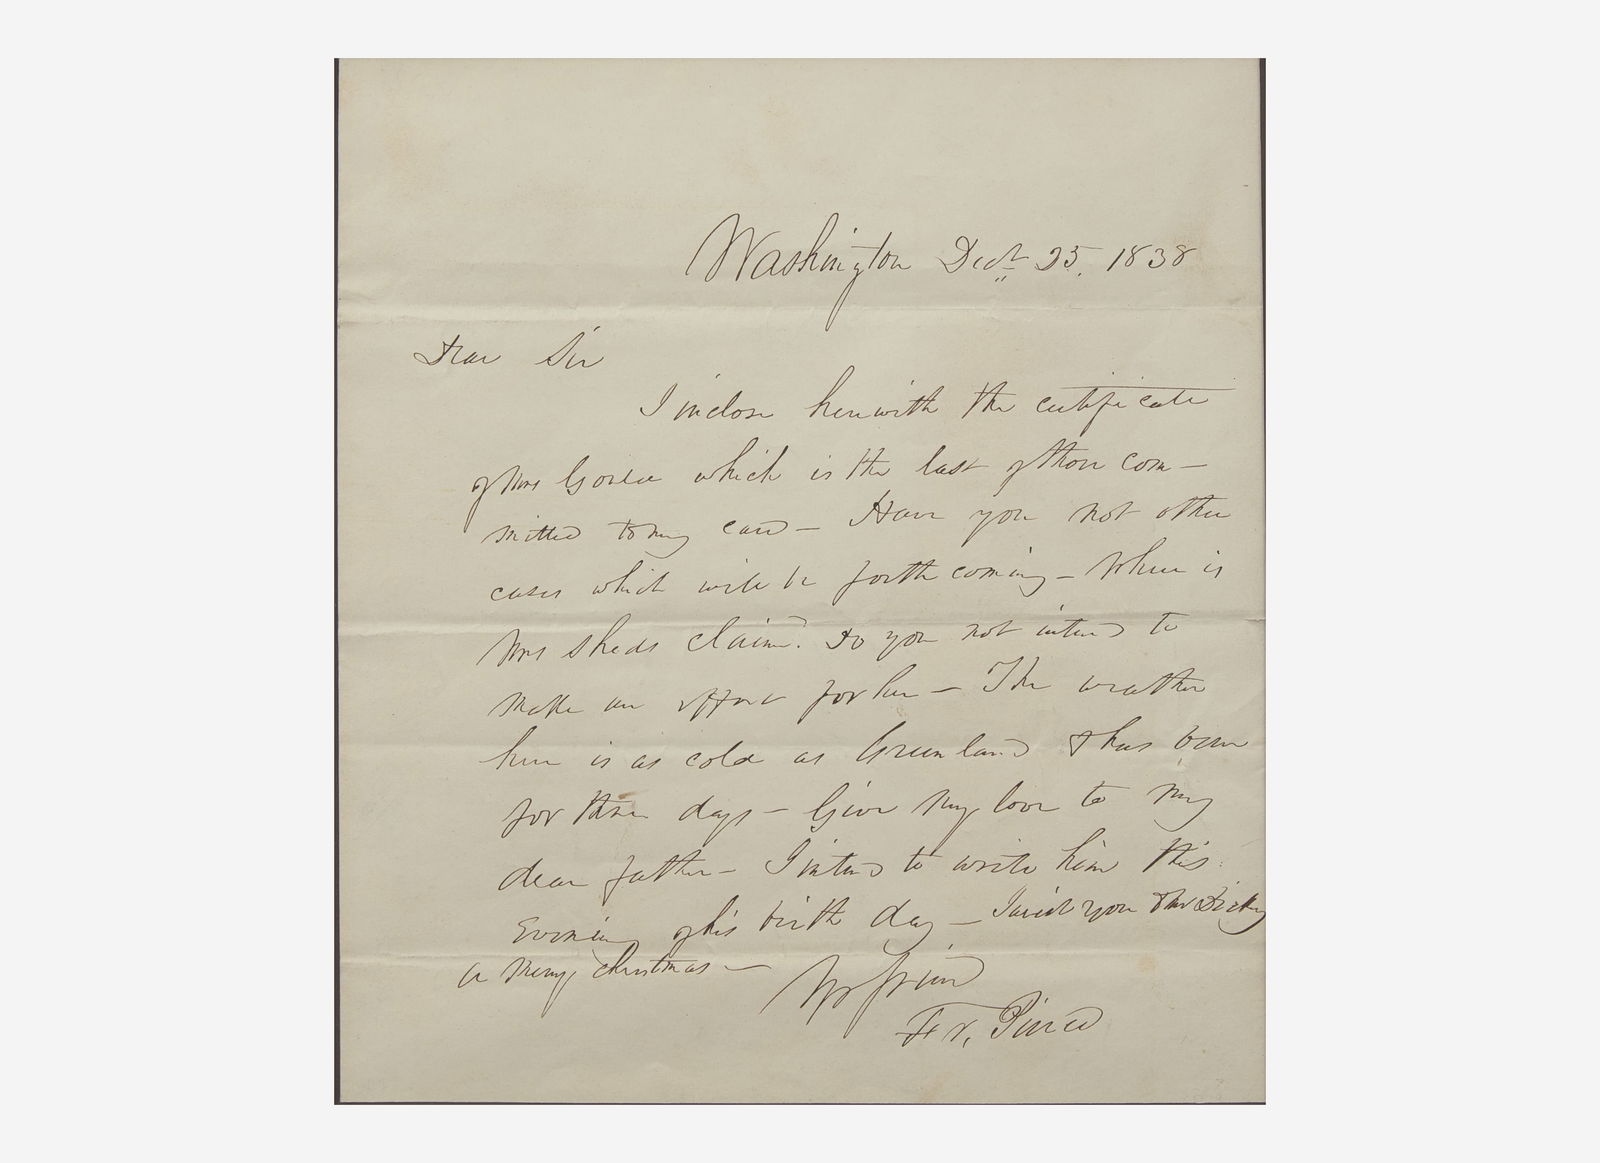 Washington Decr 25, 1838
Dear Sir
I inclose herewith the certificate
of Mrs which is the last of those com-
mitted to my care - Have you not other
cases which will be forthcoming - Where is
Mrs Sheds claim? Do you not intend to
make an effort for her - The weather
here is as cold as Greenland & has been
for three days - Give my love to my
dear father - I intend to write him this
evening of his birth day - I wish you &
a merry christmas -
Yr friend
Fr. Pierce